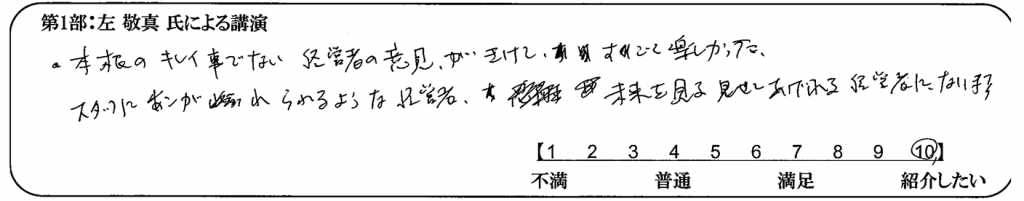 第1部：左 敬真 氏による講演
・本根のキレイ事でない 経営者の意見、がきけて、すごく楽しかった、
スタッフに あこがれられるような経営者、未来を見る 見せてあげれる 経営者になります
【1 2 3 4 5 6 7 8 9 10】
不満 普通 満足 紹介したい